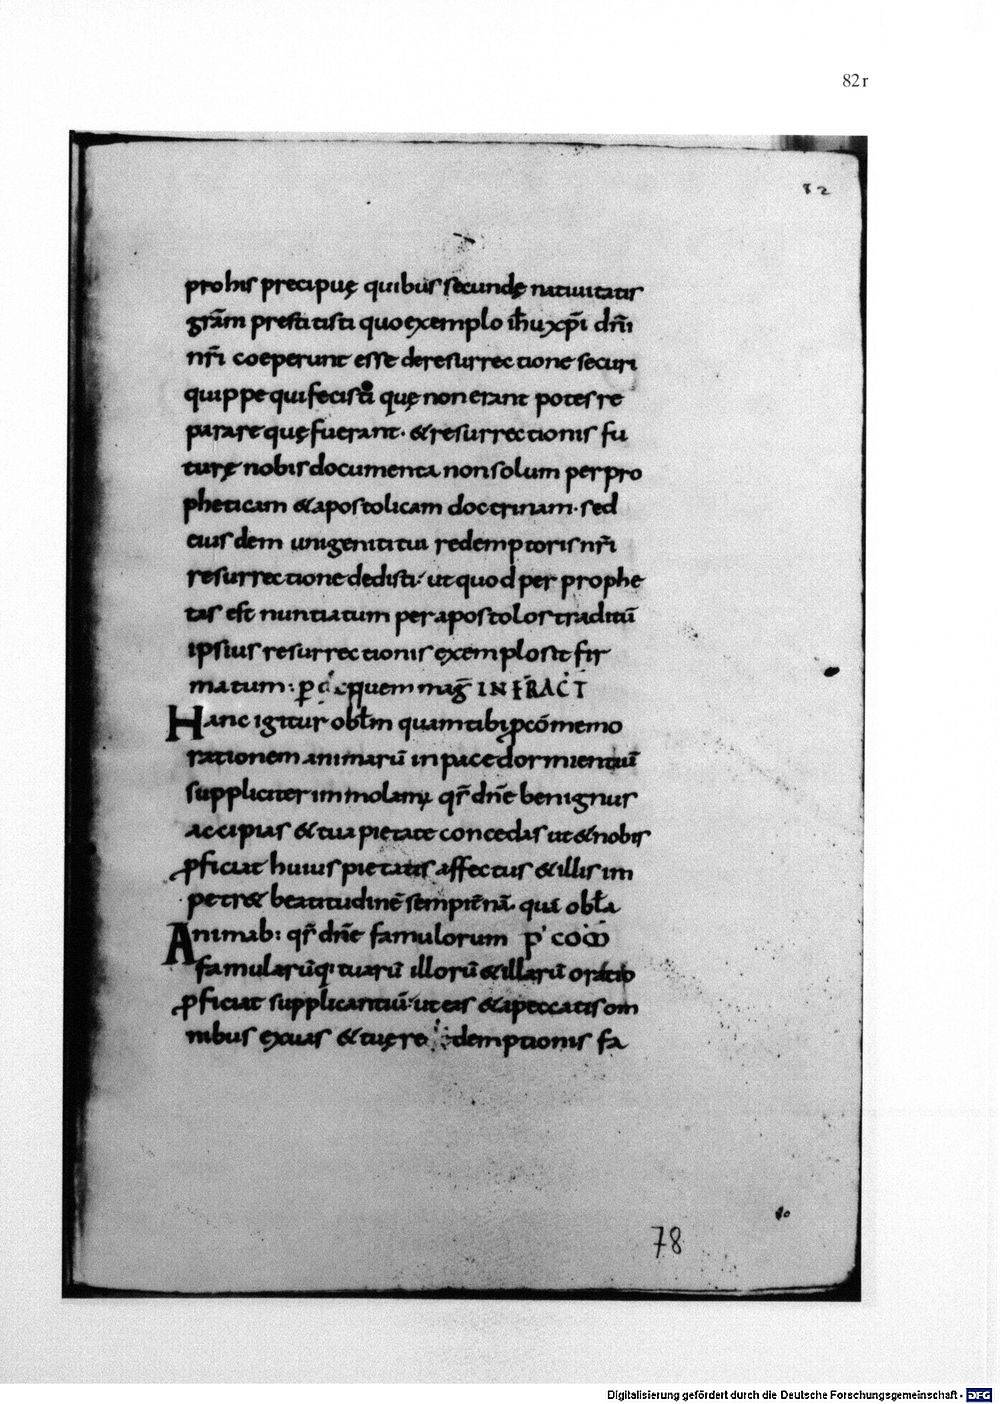 82r
82
pro his precipuę quibus secundę natiuitatis
gra͞m prestitisti quo exemplo ih̅u xp̅i dn̅i
nr̅i coeperunt esse de resurrectione securi
quippe qui fecisti quę non erant potes re
parare quę fuerant· & resurrectionis fu
turę nobis documenta non solum per pro
pheticam & apostolicam doctrinam· sed
eiusdem unigeniti tui redemptoris nr̅i
resurrectione dedisti· ut quod per prophe
tas est nuntiatum per apostolos traditū
ipsius resurrectionis exemplo sit fir
matum: ꝑ quem mag̅ INFRA C̅T̅
Hanc igitur obl̅m quam tibi ꝓ cōmemo
rationem animarū in pace dormientiū
suppliciter immolam; qs̅ dn̅e benignus
accipias & tua pietate concedas ut & nobis
ꝓficiat huius pietatis affectus & illis im
petr& beatitudinē sempit̅nā· quā obl̅a
Animab: qs̅ dn̅e famulorum p' CO̅M̅
famularūq; tuarū illorū & illarū oratio
ꝓficiat supplicantiū· ut eas & a peccatis om
nibus exuas & tuę redemptionis fa
10
78
Digitalisierung gefördert durch die Deutsche Forschungsgemeinschaft - DFG